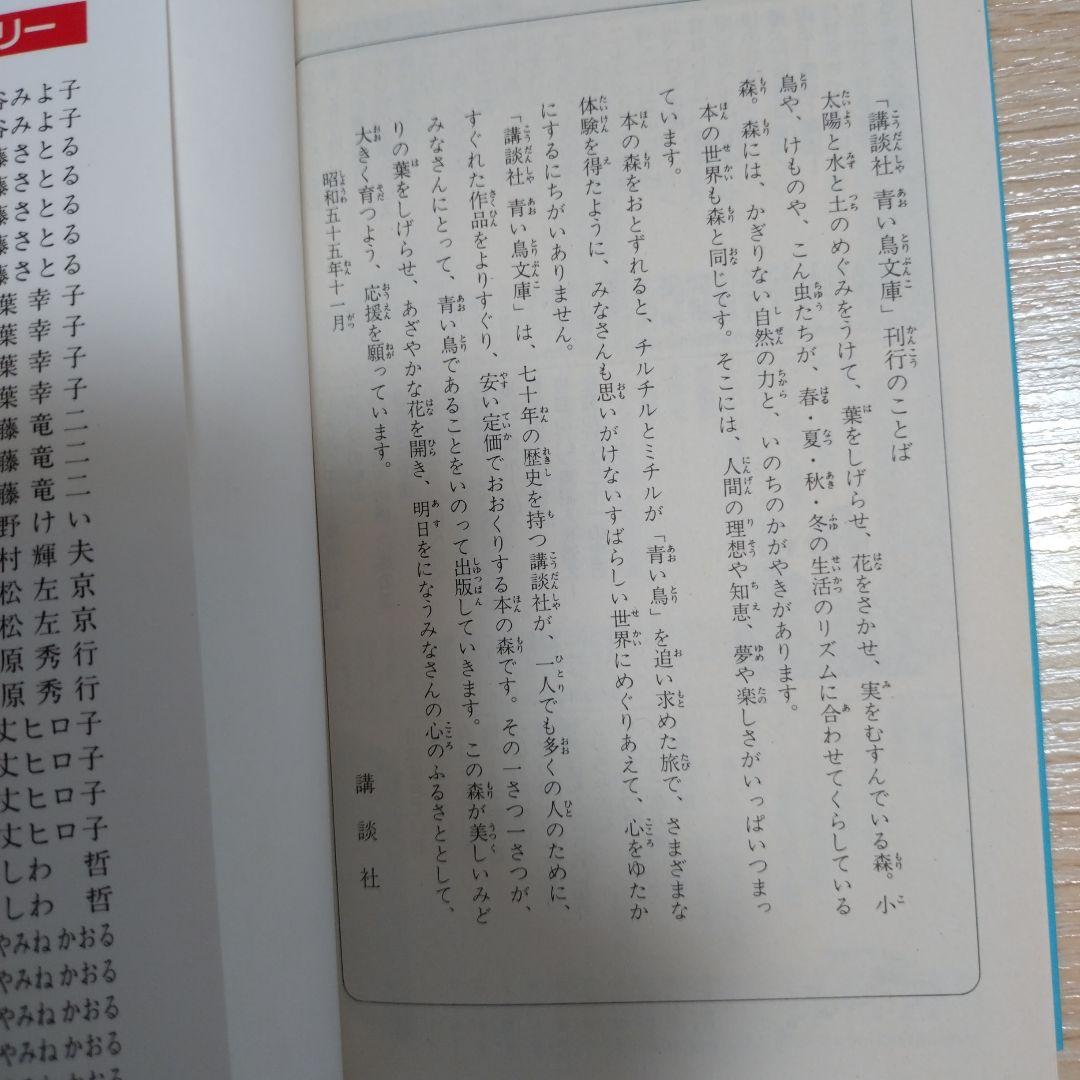 「講談社 青い鳥文庫」刊行のことば
太陽と水と土のめぐみをうけて、葉をしげらせ、花をさかせ、実をむすんでいる森。小
鳥や、けものや、こん虫たちが、春・夏・秋・冬の生活のリズムに合わせてくらしている
森。森には、かぎりない自然の力と、いのちのかがやきがあります。
本の世界も森と同じです。そこには、人間の理想や知恵、夢や楽しさがいっぱいつまっ
ています。
本の森をおとずれると、チルチルとミチルが「青い鳥」を追い求めた旅で、さまざまな
体験を得たように、みなさんも思いがけないすばらしい世界にめぐりあえて、心をゆたか
にするにちがいありません。
「講談社 青い鳥文庫」は、七十年の歴史を持つ講談社が、一人でも多くの人のために、
すぐれた作品をよりすぐり、安い定価でおおくりする本の森です。その一さつ一さつが、
みなさんにとって、青い鳥であることをいのって出版していきます。この森が美しいみど
りの葉をしげらせ、あざやかな花を開き、明日をになうみなさんの心のふるさととして、
大きく育つよう、応援を願っています。
昭和五十五年十一月
講談社
リー
谷みよ子
谷みよ子
藤さとる
藤さとる
藤さとる
藤さとる
葉幸子
葉幸子
葉幸子
葉幸子
藤竜二
藤竜二
藤竜二
野けい
村輝夫
松左京
松左京
原秀行
原秀行
丈ヒロ子
丈ヒロ子
丈ヒロ子
丈ヒロ子
しわ 哲
しわ 哲
やみねかおる
やみねかおる
やみねかおる
やみねかおる